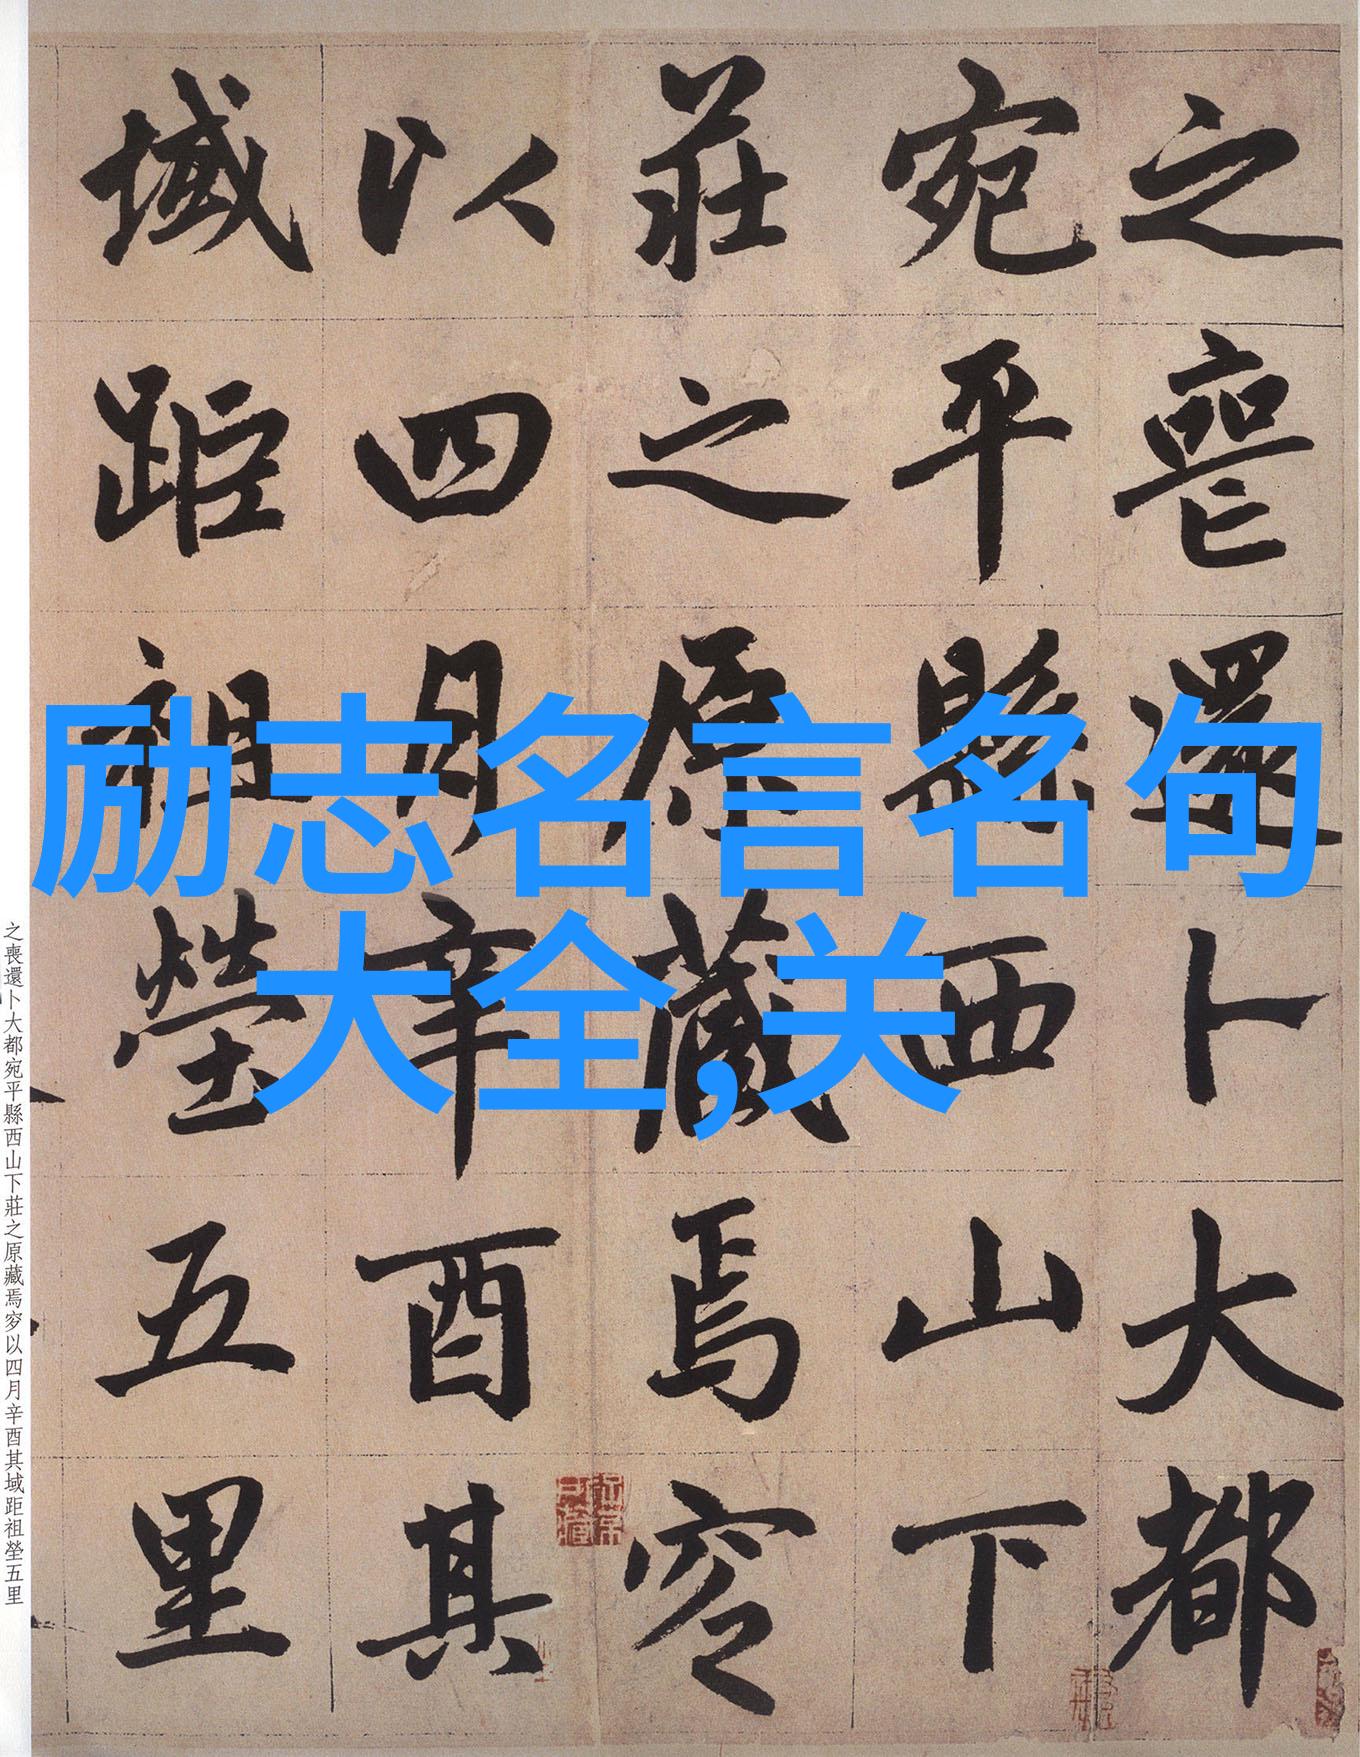 之喪還卜大都
宛平縣西山下
莊之原藏焉穸
以四月辛酉其
域距祖塋五里
励志名言名句
大全,关
之喪還卜大都宛平縣西山下莊之原藏焉穸以四月辛酉其域距祖塋五里